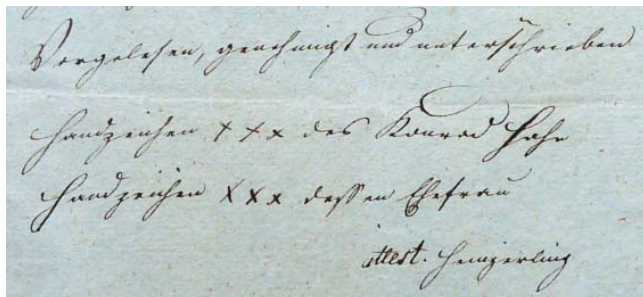 Vorgelesen, genehmigt und unterschrieben
Handzeichen + + x des Konrad Hahn
Handzeichen x x x dessen Ehefrau
attest.